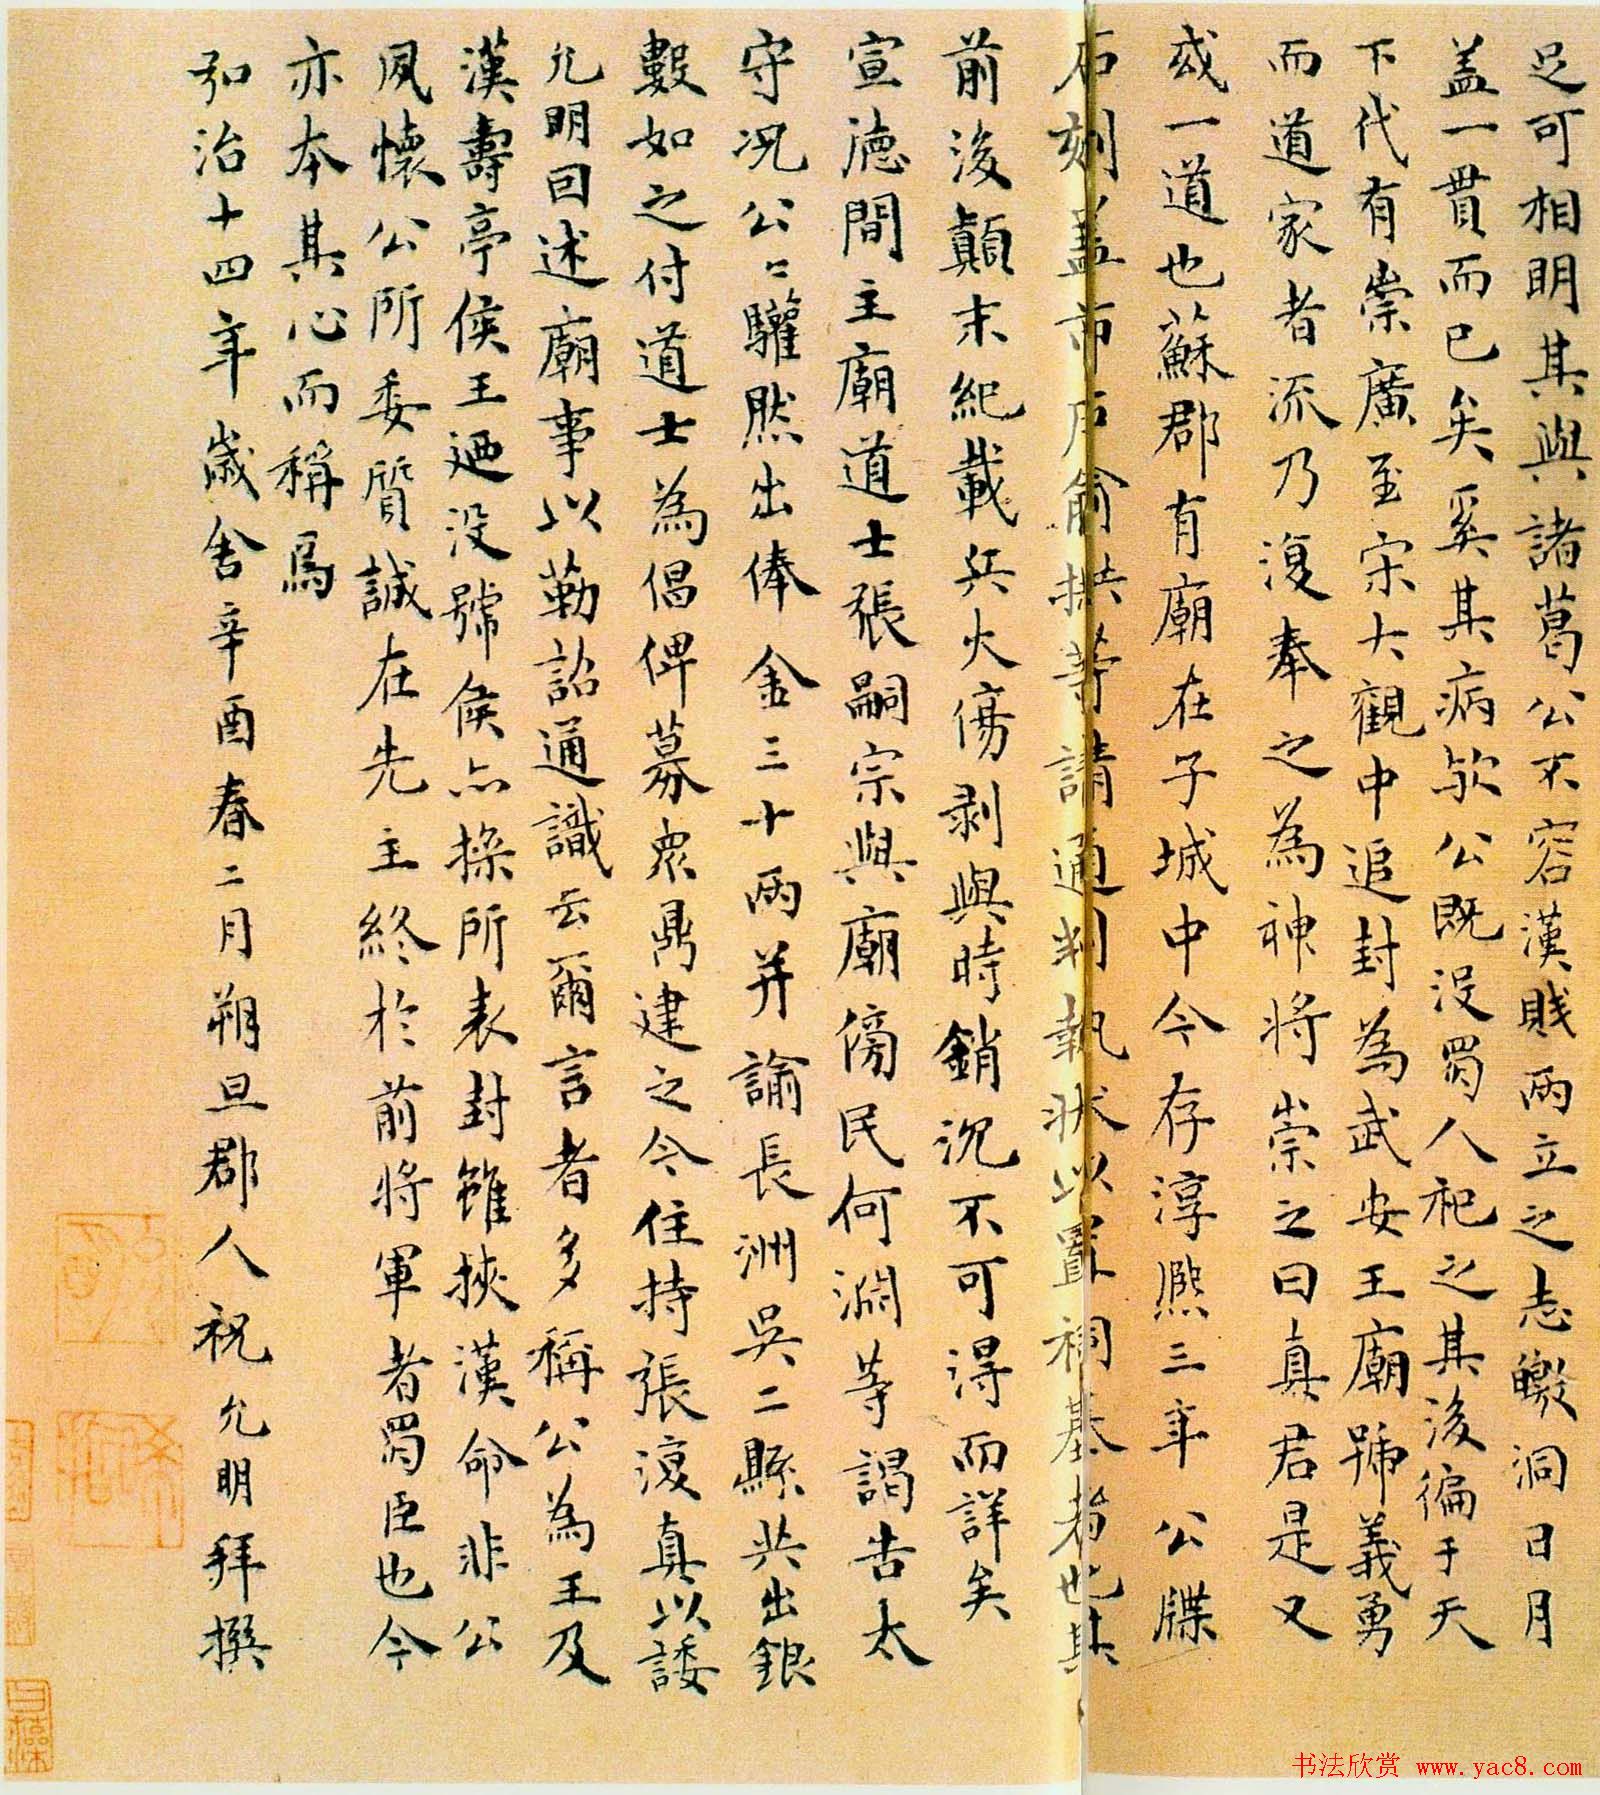 足可相明其與諸葛公不容漢賊兩立之志皦洞日月
蓋一貫而已矣奚其病欤公既没蜀人祀之其後徧于天
下代有崇廣至宋大觀中追封為武安王廟號義勇
而道家者流乃復奉之為神將崇之曰真君是又
或一道也蘇郡有廟在子城中今存淳熈三年公牒
石刻蓋市户俞拱等請通判執狀以置祠基者也其
前後顛末紀載兵火傷剥與時銷沉不可得而詳矣
宣德間主廟道士張嗣宗與廟傍民何淵等謁告太
守况公公驩然出俸金三十兩并諭長洲吳二縣共出銀
數如之付道士為倡俾募衆鼎建之今住持張復真以諉
允明回述廟事以勒詔通識云爾言者多稱公為王及
漢壽亭侯王廼没號侯亦操所表封雖挾漢命非公
夙懷公所委質誠在先主終於前將軍者蜀臣也今
亦本其心而稱焉
弘治十四年歲舍辛酉春二月朔旦郡人祝允明拜撰
书法欣赏 www.yac8.com